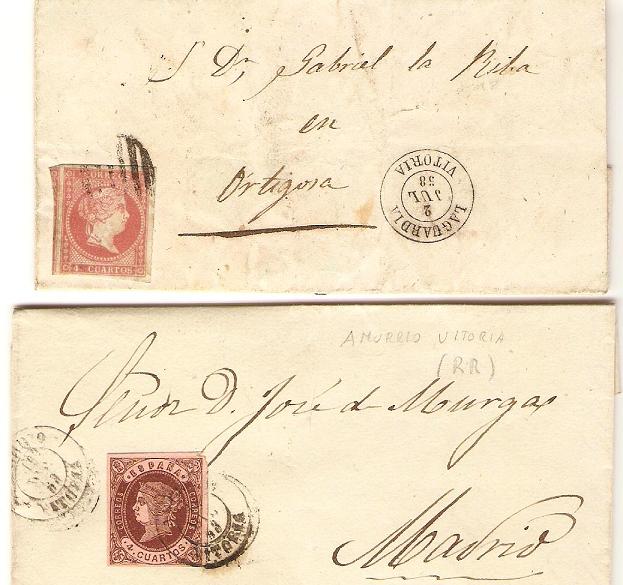 S Dn Gabriel la Riba
en
Ortigosa
CORREOS
4 CUARTOS
LAGUARDIA
2
JUL
58
VITORIA
AMURRIO VITORIA
(RR)
Señor D. José de Murga
Madrid
ESPAÑA
CORREOS
CORREOS
4 CUARTOS
VITORIA
VITORIA